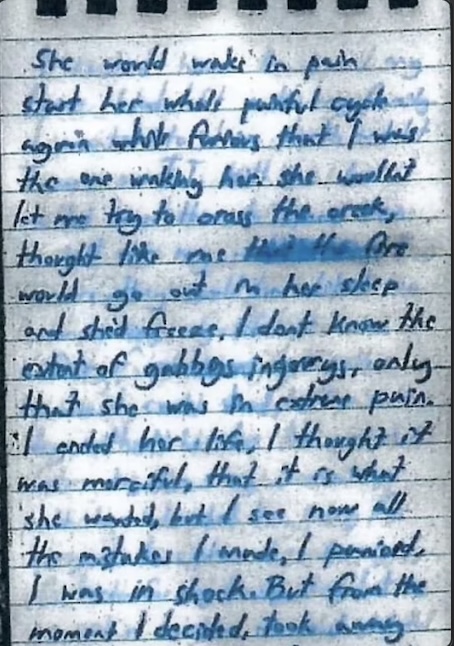 She would wake in pain
start her whole painful cycle
again while furious that I was
the one waking her. she wouldnt
let me try to cross the creek,
thought like me the fire
would go out in her sleep
and she'd freeze. I dont know the
extent of gabbys injurys, only
that she was in extreme pain.
I ended her life, I thought it
was merciful, that it is what
she wanted, but I see now all
the mistakes I made. I panicked,
I was in shock. But from the
moment I decided, took away